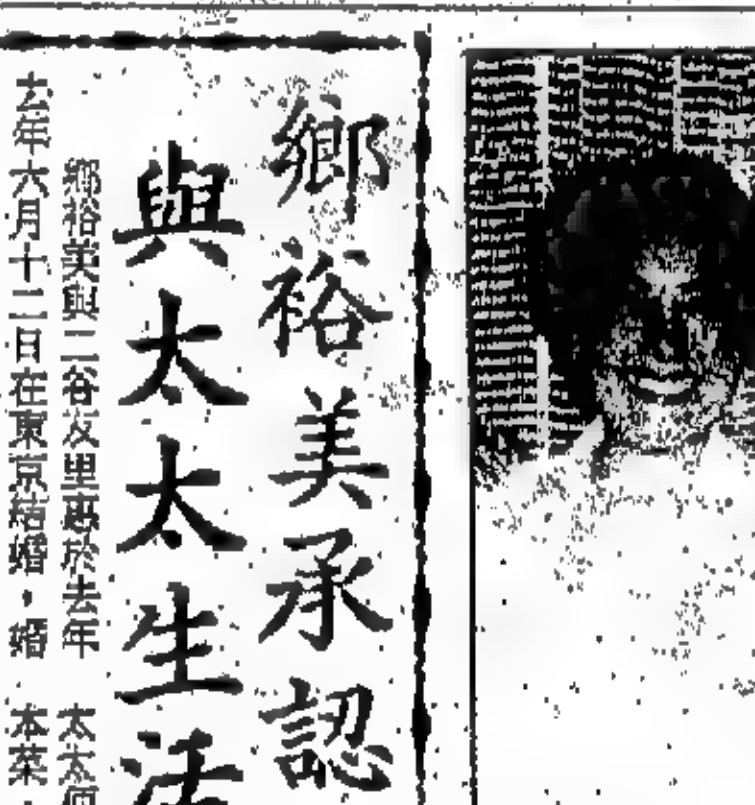 鄉裕美承認
與太太生活
鄉裕美與二谷友里惠於去年
去年六月十二日在東京結婚，婚
太太
本菜